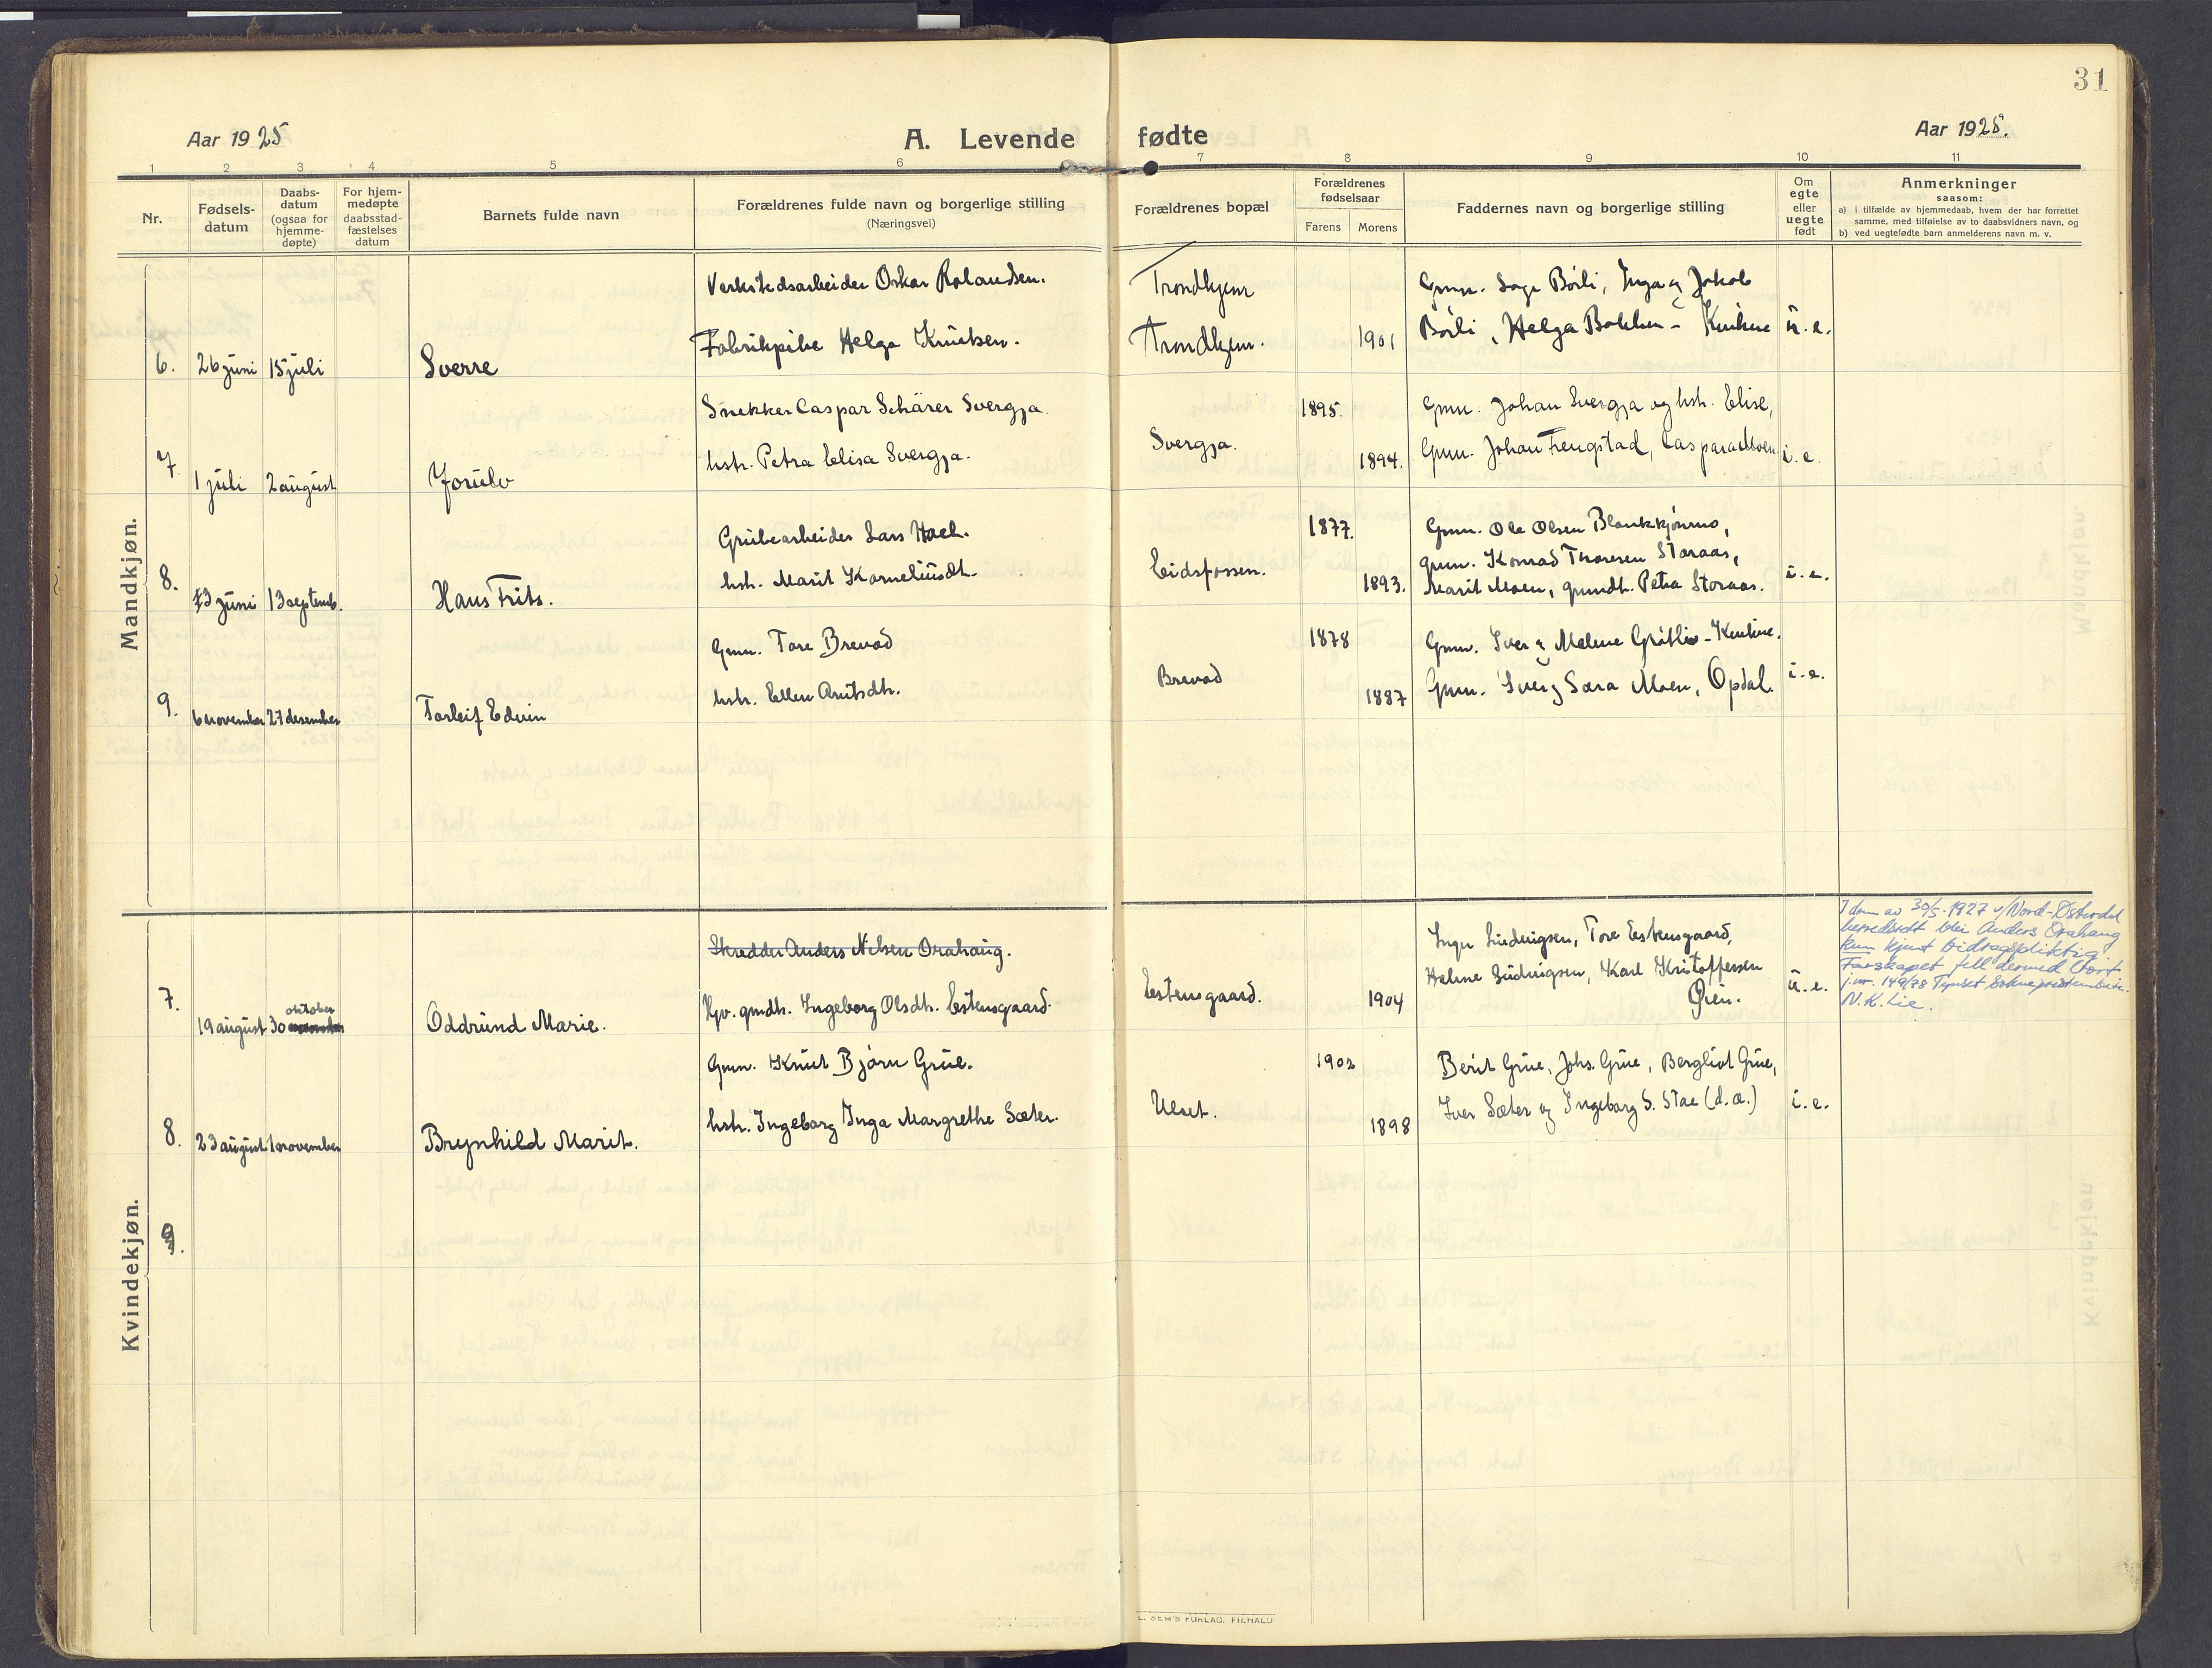 31
Aar 1925
A. Levende
fødte
Aar 1925.
1 2 3 4 5 6 7 8 9 10 11
Nr.
Fødsels-
datum
Daabs-
datum
(ogsaa for
hjemme-
døpte)
For hjem-
medøpte
daabsstad-
fæstelses
datum
Barnets fulde navn
Forældrenes fulde navn og borgerlige stilling
(Næringsvei)
Forældrenes bopæl
Forældrenes
fødselsaar
Farens Morens
Faddernes navn og borgerlige stilling
Om
egte
eller
uegte
født
Anmerkninger
saasom:
a) i tilfælde av hjemmedaab, hvem der har forrettet
samme, med tilføielse av to daabsvidners navn, og
b) ved uegtefødte barn anmelderens navn m. v.
Mandkjøn.
Verkstedsarbeider Oskar Rolandsen.
Trondhjem
Gmn. Inga Børli, Inga og Jakob
Fabrikpike Helga Knutsen.
Trondhjem.
1901
Børli, Helga Bakken - Kvikne
u.e.
6. 26 juni 15 juli
Sverre
Snekker Caspar Schärer Svergja
1895.
Gmn. Johan Svergja og hstr. Elise,
hstr. Petra Elisa Svergja.
Svergja.
1894.
Gmn. Johan Frengstad, Caspara Moen
i.e.
7. 1 juli 2 august
Jorulv
Grubearbeider Lars Hoel.
1877.
Gmn. Ole Olsen Blankkjønmo,
hstr. Marit Korneliusdt.
Eidsfossen.
1893.
gmn. Konrad Thoresen Storaas,
Marit Moen, gmndt. Petra Storaas.
i.e.
8. 13 juni 13 septemb.
Hans Frits.
Gmn. Tore Brevad
1878
Gmn. Iver og Malene Grøtli - Kvikne.
hstr. Ellen Arntsdtr.
Brevad
1887
Gmn. Iver og Sara Moen, Opdal.
i.e.
9. 6 november 27 desember
Torleif Edvin
Kvindekjøn.
Skredder Anders Nilsen Orahaug.
Inga Ludvigsen, Tore Estensgaard,
Helene Ludvigsen, Karl Kristoffersen
Øien.
7. 19 august 30 oktober
Oddrund Marie.
Gv. gmdtr. Ingeborg Olsdtr. Estensgaard.
Estensgaard.
1904
u.e.
I dom av 30/5-1927 v/Nord-Østerdal
herredsrett blei Anders Orahaug
kun kjent bidragspliktig.
Farskapet fell dermed bort
j.nr. 149/78 Tynset sokneprestembete.
N.K. Lie.
Gmn. Knut Bjørn Grue.
1902
Berit Grue, Johs. Grue, Bergliot Grue,
hstr. Ingeborg Inga Margrethe Sæter.
Ulset.
1898
Iver Sæter og Ingeborg S. Stae (d.æ.)
i.e.
8. 23 august 1 november
Brynhild Marit.
9.
E. SEM'S FORLAG, FR.HALD